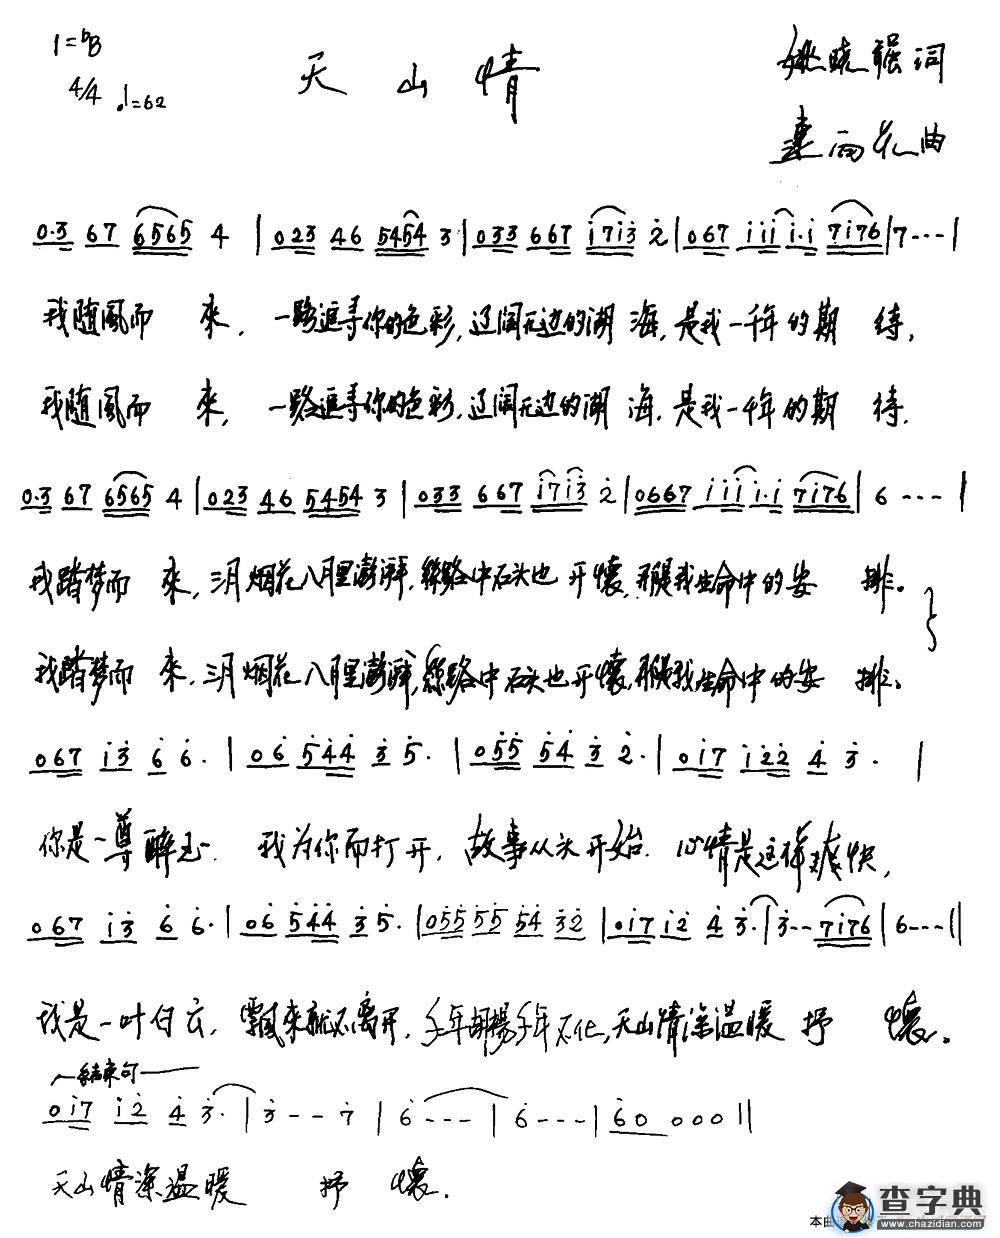 1=♭B
天山情
姚晓强词
4/4 ♩=62
雨花曲
0·3 67 6565 4 | 023 46 5454 3 | 033 667 i7i3 2 | 067 iii i·i 7i76 | 7--- |
我随風而 來，一路追寻你的色彩，辽阔无边的湖 海，是我一千年的期 待，
我随風而 來，一路追寻你的色彩，辽阔无边的湖 海，是我一千年的期 待，
0·3 67 6565 4 | 023 46 5454 3 | 033 667 i7i3 2 | 0667 iii i·i 7i76 | 6 --- |
我踏梦而 來，三月烟花八月里澎湃，絲路中石头也 开懷，那是我生命中的安 排。
我踏梦而 來，三月烟花八月里澎湃，絲路中石头也开懷，那是我生命中的安 排。
067 i3 6 6· | 06 544 3 5· | 055 54 3 2· | 0i7 i22 4 3· |
你是一尊醉玉，我为你而打开，故事从头开始，心情是这样爽快，
067 i3 6 6· | 06 544 3 5· | 055 55 54 32 | 0i7 i2 4 3· | 3-- 7i76 | 6--- ||
我是一叶白云，飘来就不离开，千年胡楊千年不化，天山情深温暖 抒 懷。
结束句
0i7 i2 4 3· | 3 - - 7 | 6 --- | 6 --- | 60 000 ||
天山情深温暖 抒 懷．
本曲
查字典
www.chazidian.com